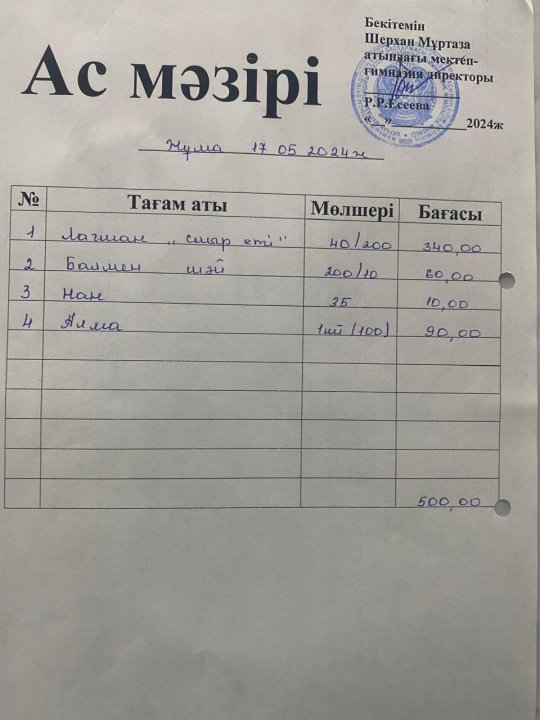 Бекітемін
Шерхан Мұртаза
атындағы мектеп-
гимназия директоры
Р.Р.Есеева
«__»__________2024ж
Ас мәзірі
Жұма 17 05 2024ж
№ Тағам аты Мөлшері Бағасы
1 Лагман „сиыр еті" 40/200 340,00
2 Балмен шәй 200/10 60,00
3 Нан 35 10,00
4 Алма 1шт (100) 90,00
500,00